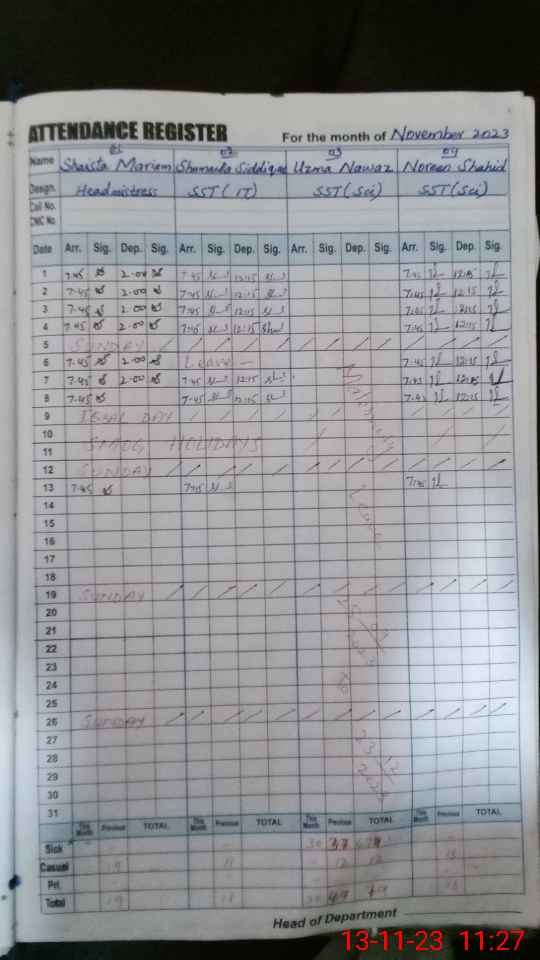 ATTENDANCE REGISTER For the month of November 2023
01 02 03 04
Name Shaista Mariam Shamaila Siddique Uzma Nawaz Noreen Shahid
Desgn. Headmistress SST (IT) SST (Sci) SST (Sci)
Call No.
CNIC No.
Date Arr. Sig. Dep. Sig. Arr. Sig. Dep. Sig. Arr. Sig. Dep. Sig. Arr. Sig. Dep. Sig.
1 7.45 2.00 7.45 12:15 7.45 12:15
2 7.45 2.00 7.45 12:15 7.45 12:15
3 7.45 2.00 7.45 12:15 7.45 12:15
4 7.45 2.00 7.45 12:15 7.45 12:15
5 SUNDAY
6 7.45 2.00 Leave 7.45 12:15
7 7.45 2.00 7.45 12:15 7.45 12:15
8 7.45 7.45 12:15 7.45 12:15
9 IQBAL DAY
10 SMOG HOLIDAYS
11
12 SUNDAY
13 7.45 7.45 7.45
14
15
16
17
18
19 SUNDAY
20
21
22
23
24
25
26 SUNDAY
27
28
29
30
31
Maternity Leave
2023
to
23 12 2023
This Month Previous TOTAL This Month Previous TOTAL This Month Previous TOTAL This Month Previous TOTAL
Sick 30 37
Casual 19 11 12 12 13
Pri.
Total 19 49
Head of Department
13-11-23 11:27